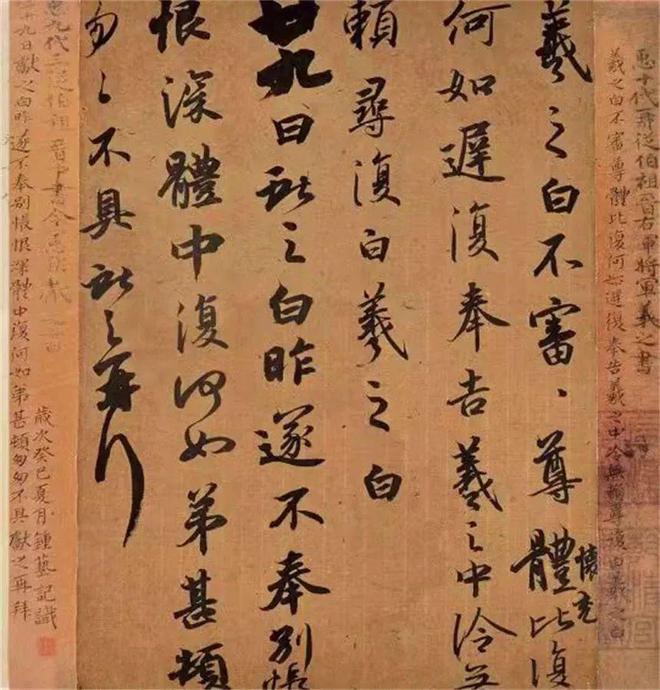 十代再從伯祖晉右軍將軍羲之書
羲之白不審尊體比復何如遲復奉告羲之中冷無賴尋復白羲之白
羲之白不審、尊體比復
懷充
何如遲復奉告羲之中冷無
賴尋復白羲之白
廿九日獻之白昨遂不奉別悵
恨深體中復何如弟甚頓
匆〻不具獻之再拜
九代三從伯祖晉中書令
歲次癸巳夏月鍾藝記識
二十九日獻之白昨遂不奉別悵恨深體中復何如弟甚頓匆匆不具獻之再拜